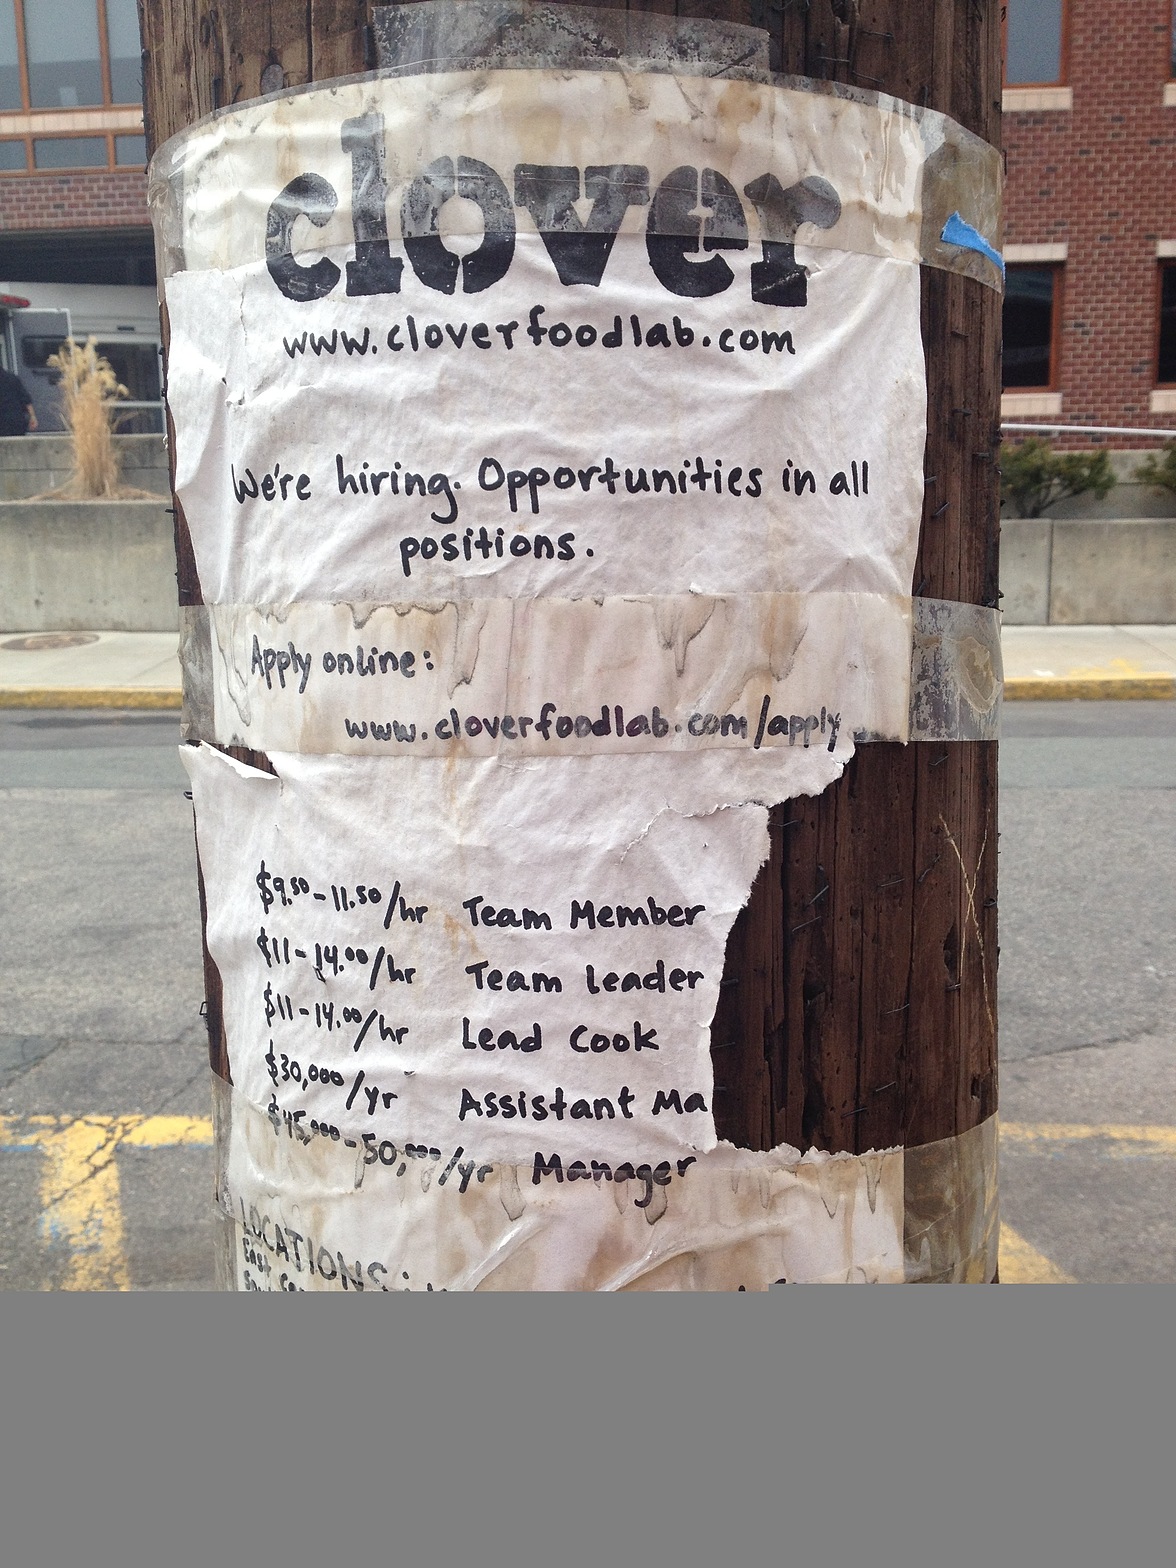 clover
www.cloverfoodlab.com
We're hiring. Opportunities in all
positions.
Apply online:
www.cloverfoodlab.com/apply
$9.50-11.50/hr Team Member
$11-14.00/hr Team Leader
$11-14.00/hr Lead Cook
$30,000/yr Assistant Ma
$45,000-50,000/yr Manager
LOCATIONS:
East